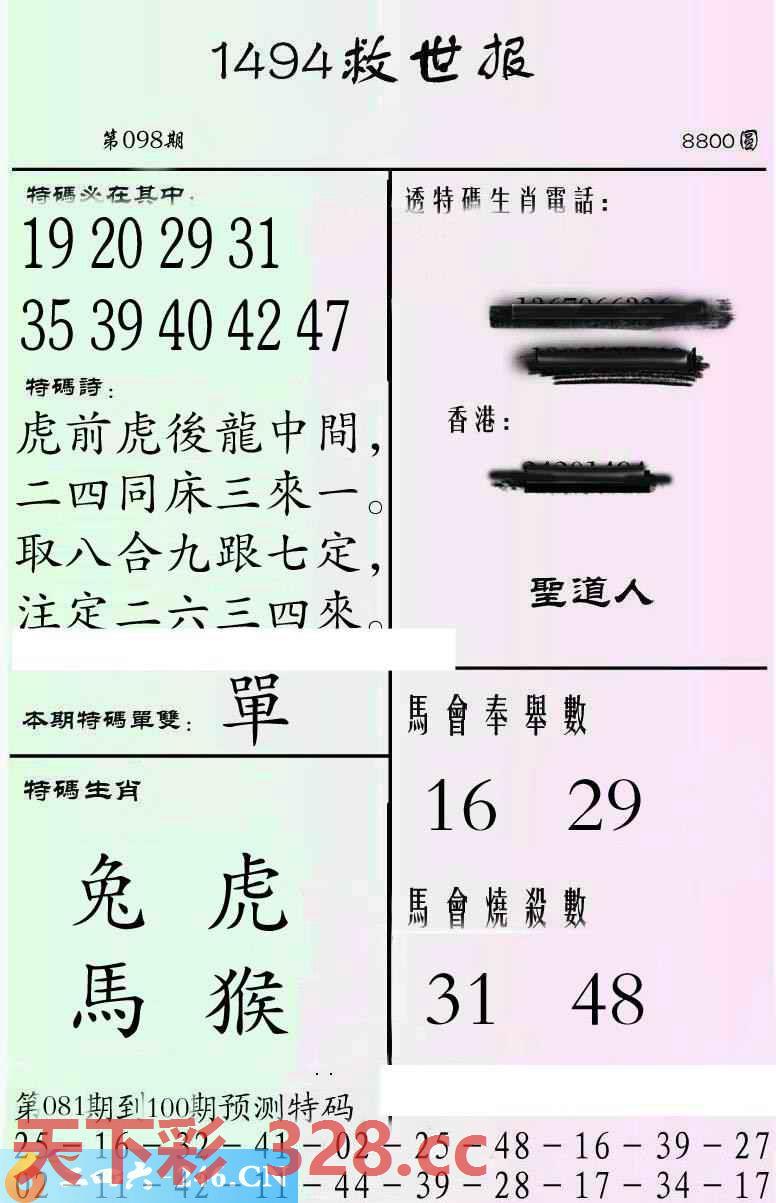 1494救世报
第098期
8800圓
特碼必在其中:
19 20 29 31
35 39 40 42 47
特碼詩:
虎前虎後龍中間,
二四同床三來一。
取八合九跟七定,
注定二六三四來。
本期特碼單雙: 單
特碼生肖
兔 虎
馬 猴
透特碼生肖電話:
香港:
聖道人
馬會奉舉數
16 29
馬會燒殺數
31 48
第081期到100期预测特码
25－16－32－41－02－25－48－16－39－27
02－11－42－11－44－39－28－17－34－17
天下彩 328.cc
二四六 246.CN